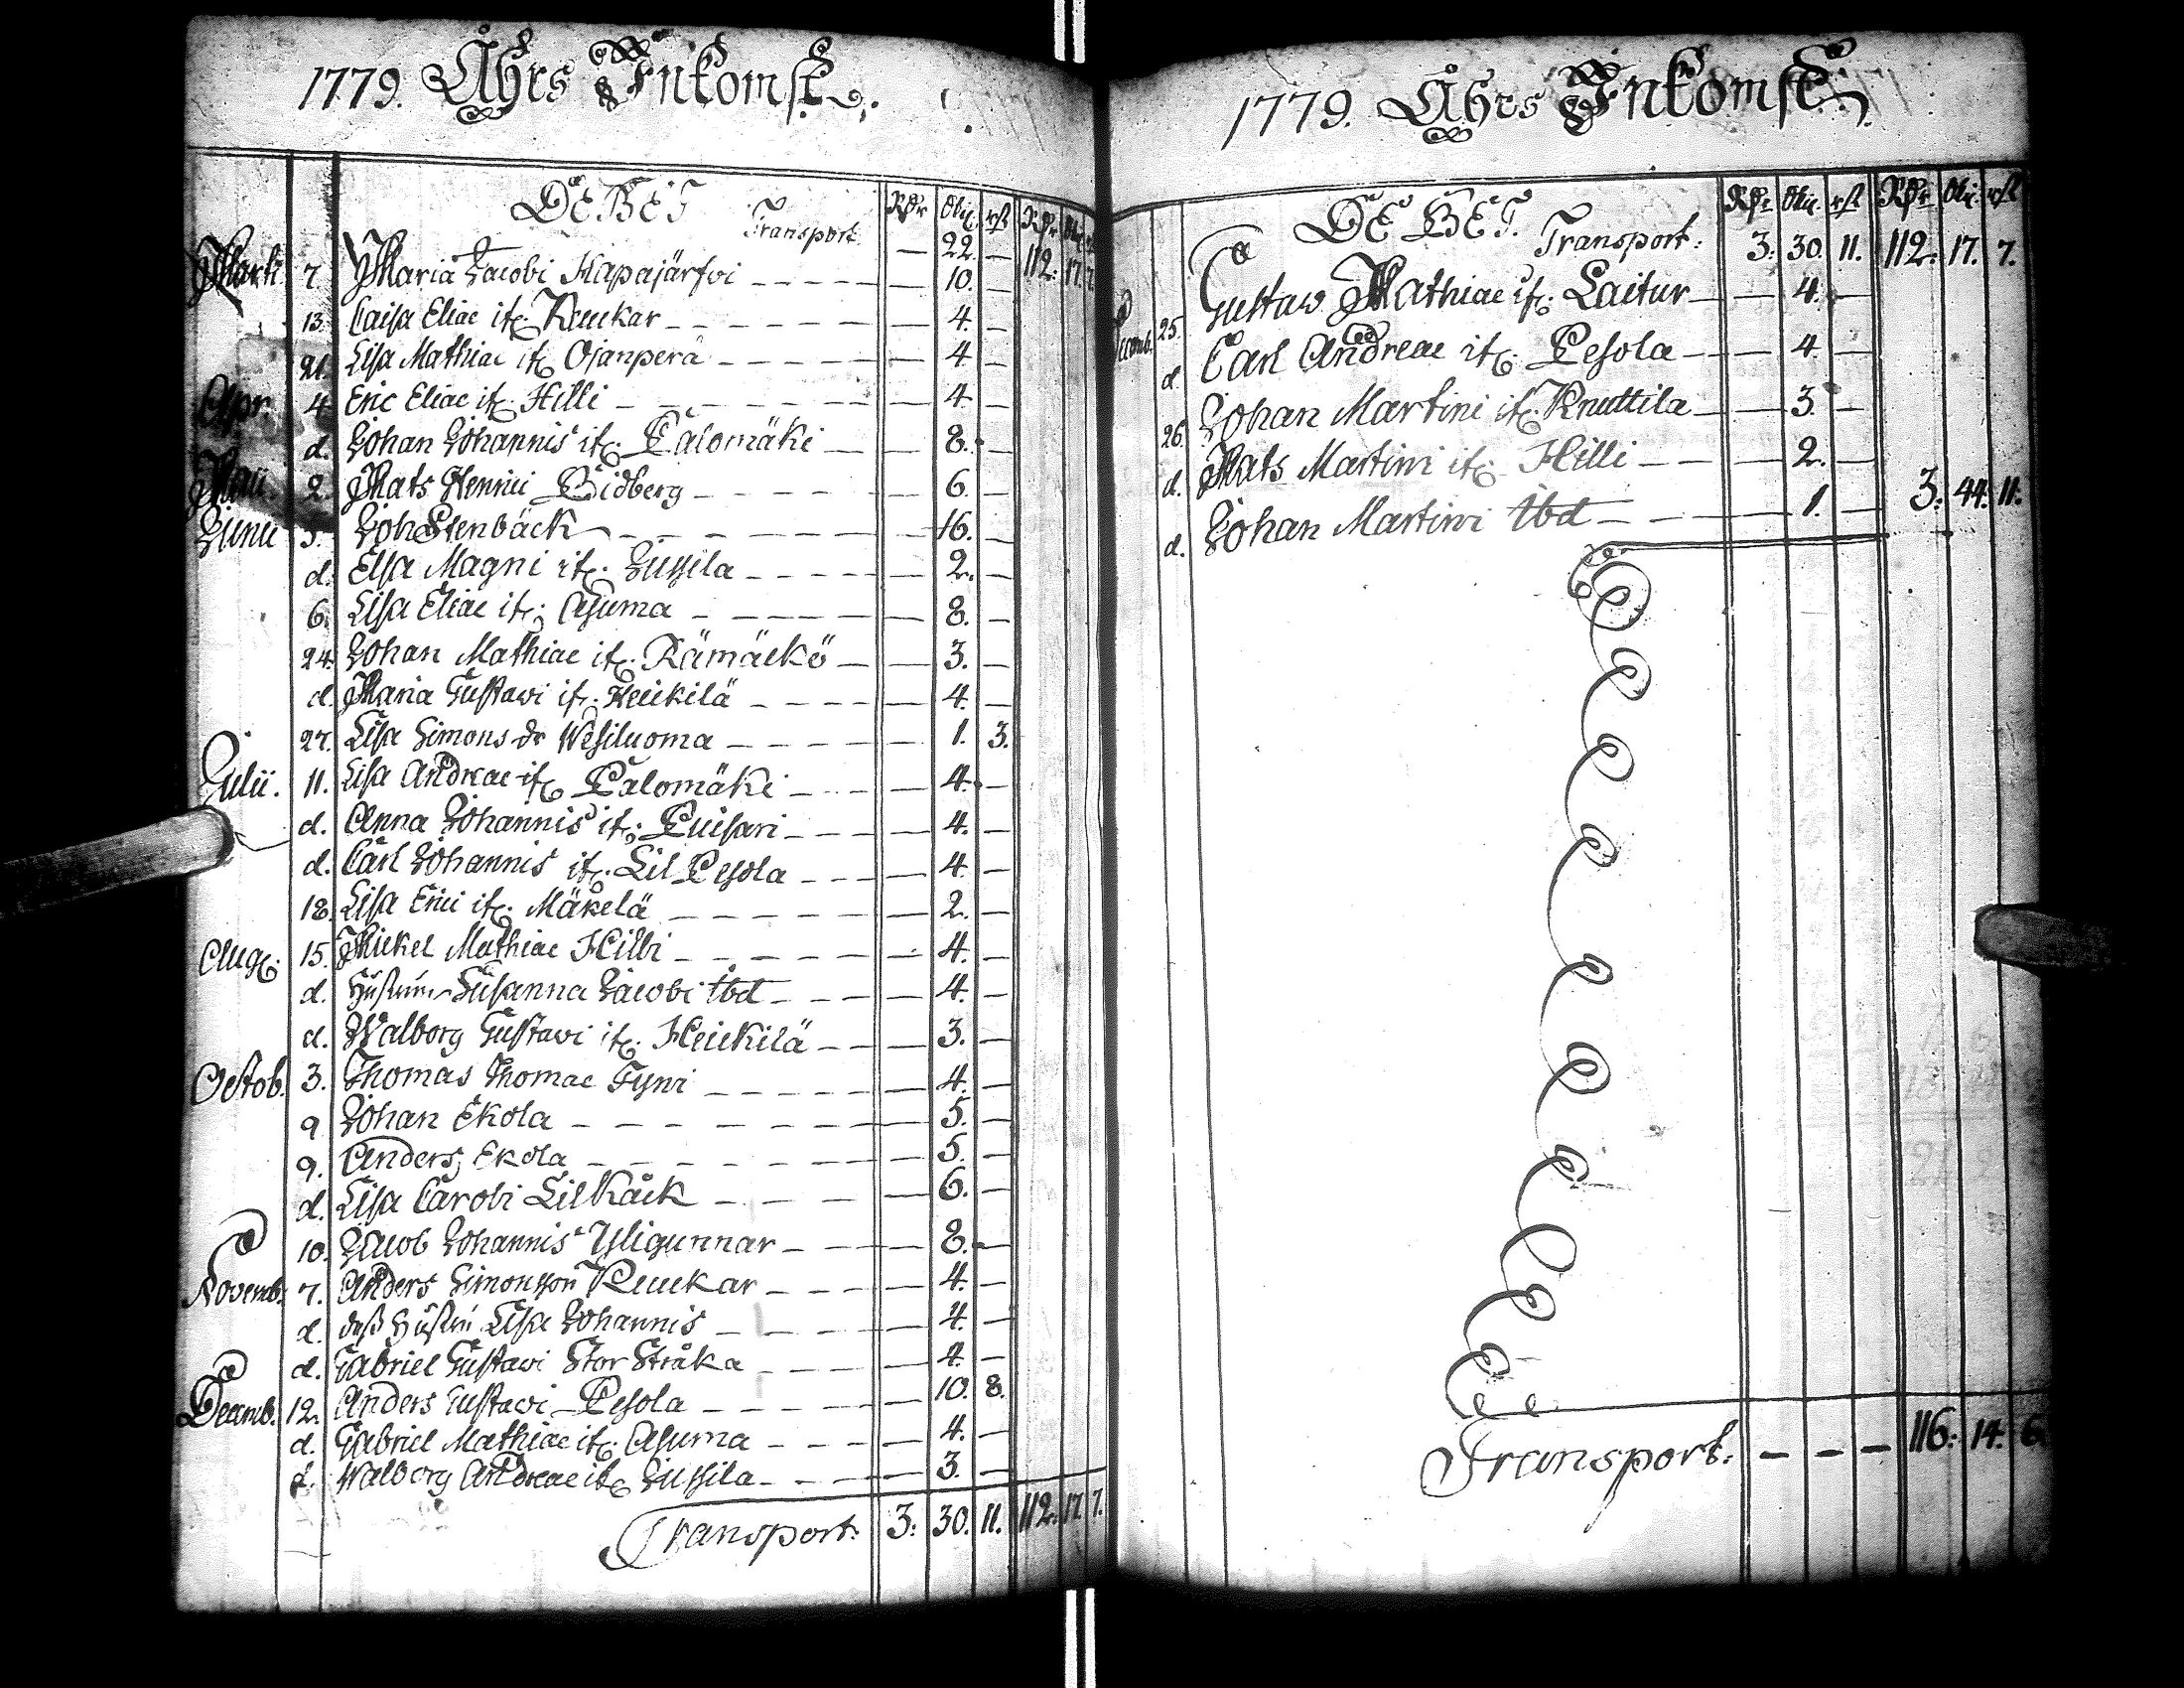 1779. Åhrs Inkomst.
DEBET Transport. Rdr Skil. rst Rdr Skil. rst
— 22. — 112. 17. 7.
Martii 7. Maria Jacobi Hapajärfvi — 10. —
13. Caisa Eliae it. Kruckar — 4. —
21. Lisa Mathiae it. Ojanperä — 4. —
Apr. 4. Eric Eliae it. Hilli — 4. —
d. Johan Johannis it. Palomäki — 8. —
Maii 2. Mats Henrici Bidberg — 6. —
Junii 5. Joh Stenbäck — 16. —
d. Elsa Magni it. Jussila — 2. —
6. Lisa Eliae it. Asuma — 8. —
24. Johan Mathiae it. Rämäckö — 3. —
d. Maria Gustavi it. Heickilä — 4. —
27. Lisa Simons dr Wesiluoma — 1. 3.
Julii. 11. Lisa Andreae it. Palomäki — 4. —
d. Anna Johannis it. Puisari — 4. —
d. Carl Johannis it. Lil Pesola — 4. —
18. Lisa Erici it. Mäkelä — 2. —
Aug. 15. Mickel Mathiae Hilbi — 4. —
d. Hustrun Susanna Jacobi ibd — 4. —
d. Walborg Gustavi it. Heickilä — 3. —
Octob. 3. Thomas Thomae Fyni — 4. —
9. Johan Ekola — 5. —
9. Anders Ekola — 5. —
d. Lisa Caroli Lilkåck — 6. —
10. Jacob Johannis Yligunnar — 8. —
Novemb. 7. Anders Simonsson Kruckar — 4. —
d. dess Hustru Lisa Johannis — 4. —
d. Gabriel Gustavi Stor Stråka — 4. —
Decemb. 12. Anders Gustavi Pesola — 10. 8.
d. Gabriel Mathiae it. Asuma — 4. —
d. Walborg Andreae it. Jussila — 3. —
Transport. 3. 30. 11. 112. 17. 7.
1779. Åhrs Inkomst.
DEBET. Rdr Skil. rst Rdr Skil. rst
Transport: 3. 30. 11. 112. 17. 7.
Decemb. 25. Gustaw Mathiae it. Laitur — 4. —
d. Carl Andreae it. Pesola — 4. —
26. Johan Martini it. Knuttila — 3. —
d. Mats Martini it. Hilli — 2. —
d. Johan Martini ibd — 1. — 3. 44. 11.
Transport. — — — 116. 14. 6.